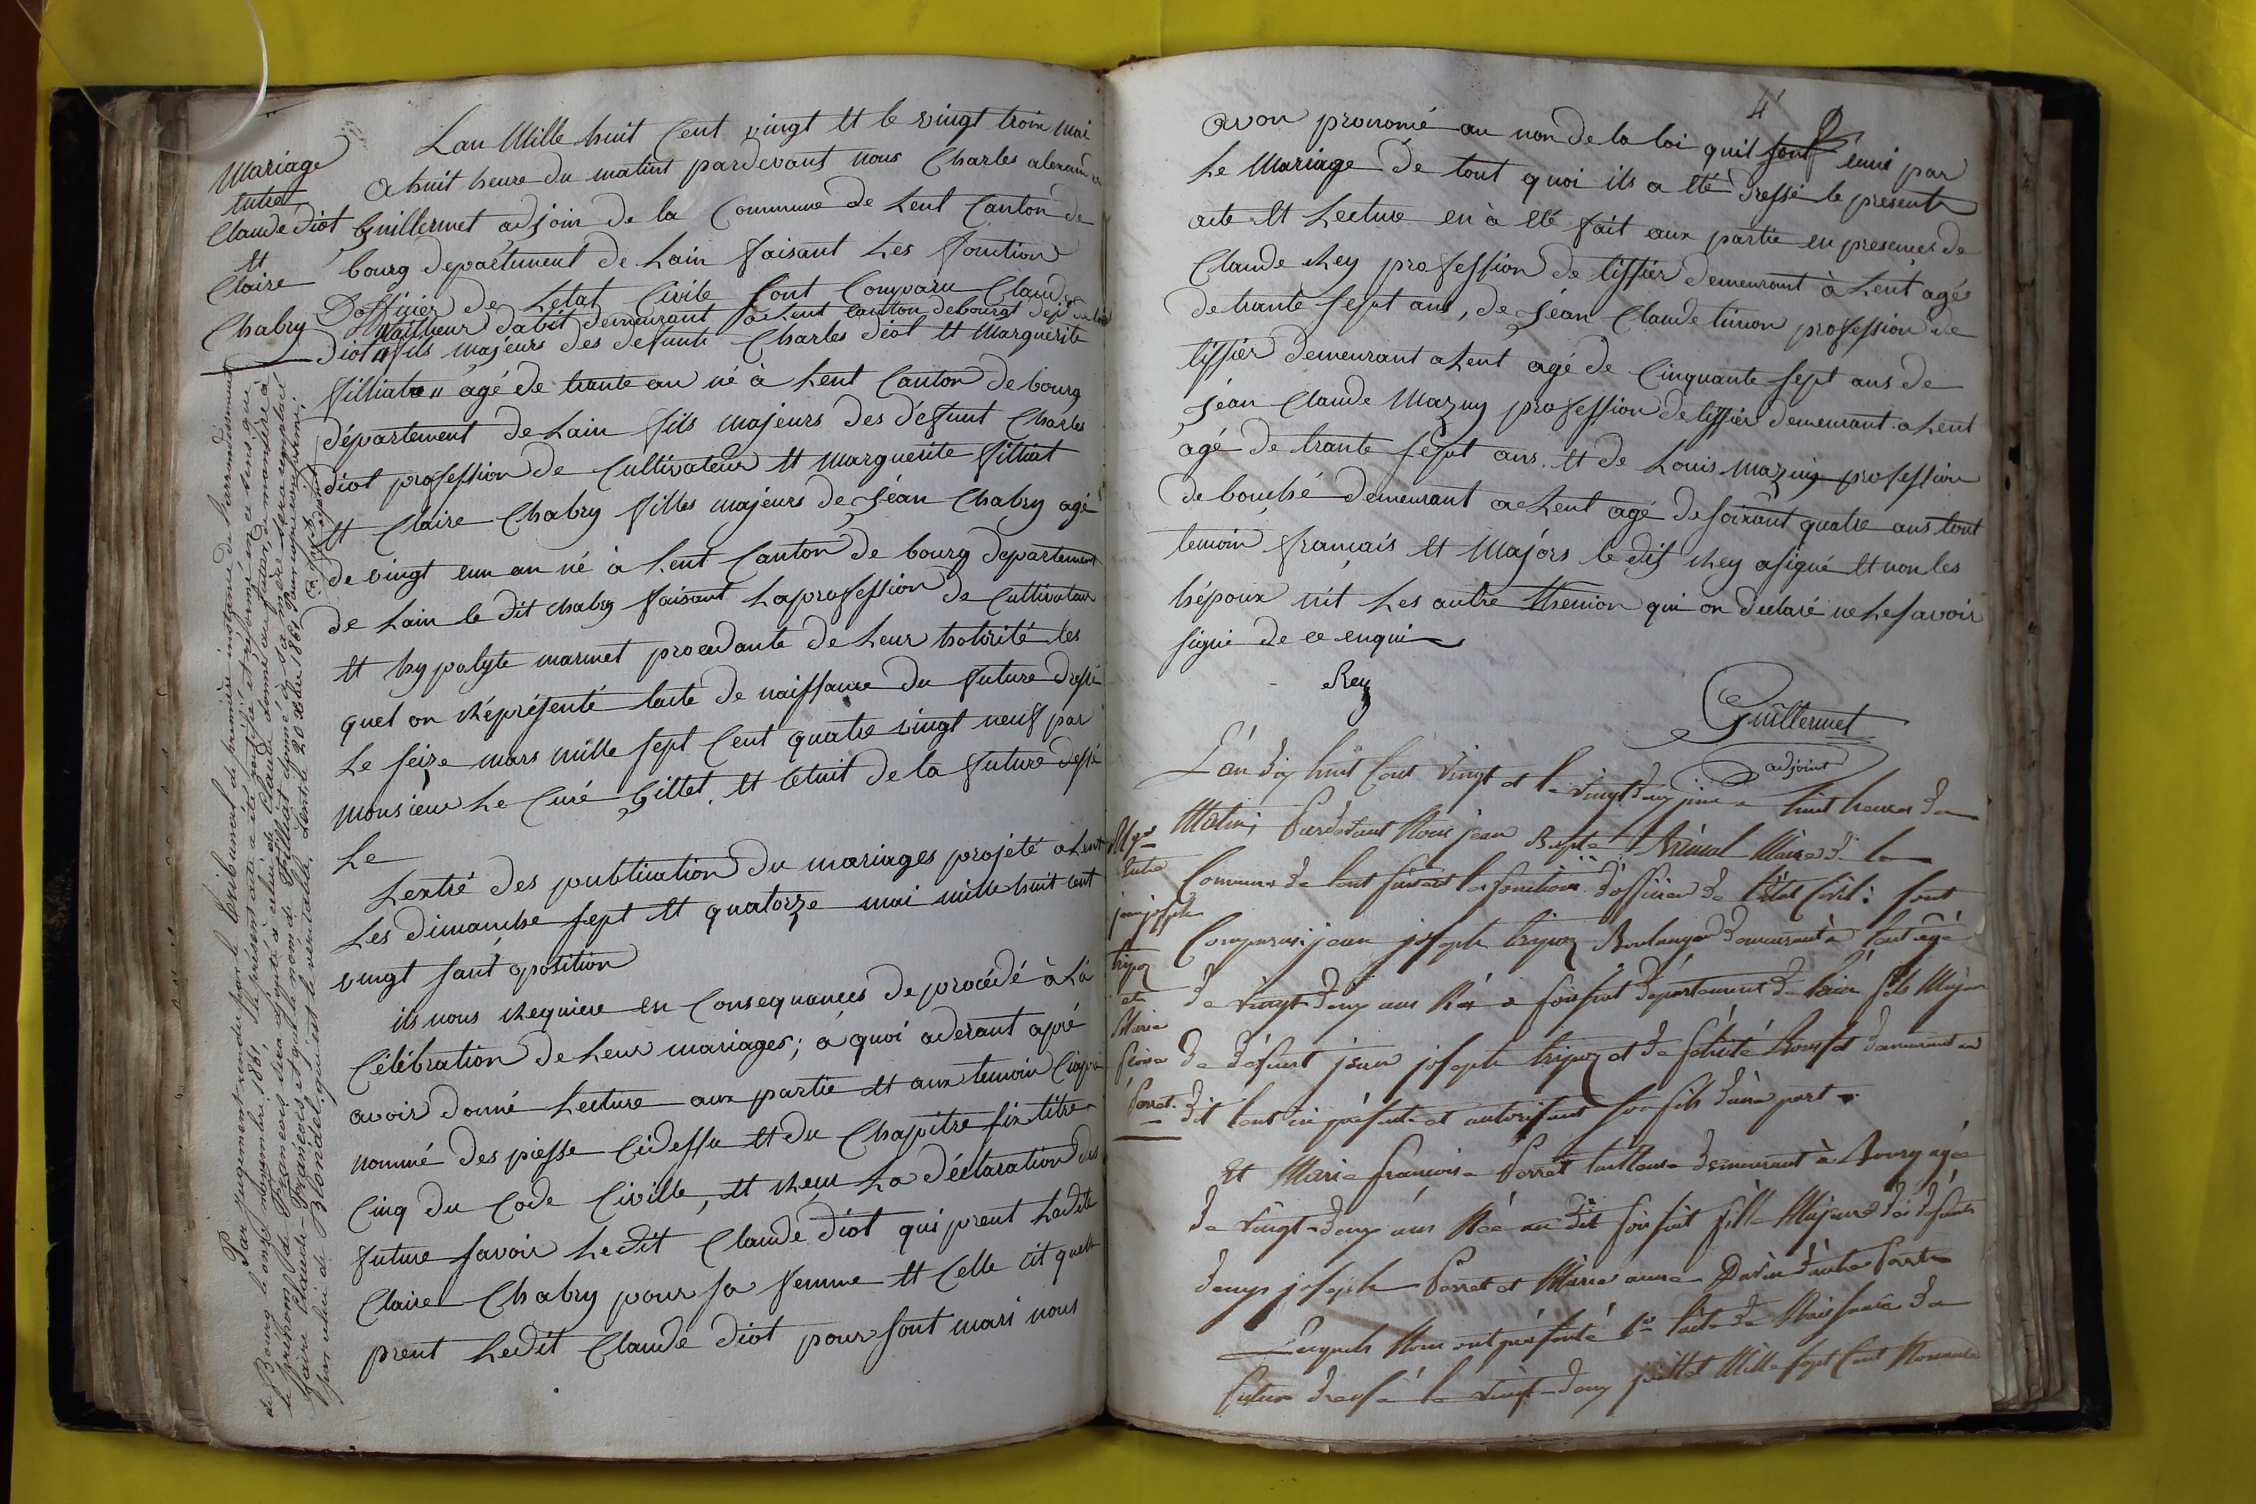 Mariage
entre
Claude Diot
et
Claire
Chabry
Lan Mille huit Cent vingt et le vingt trois mai
a huit heure du matint pardevant nous Charles alexandre
Guillermet adjoin de la Commune de Lent Canton de
bourg departement de Lain faisant Les fonction
D'officier de Letat Civile sont Comparu Claude
tailleur dabit demeurant a Lent canton de bourgt dept de lain
diot fils majeurs des defunts Charles diot et Marguerite
filliat agé de trante an né à Lent Canton de bourg
département de Lain fils majeurs des défunt Charles
diot profession de Cultivateur et marguerite filliat
et Claire Chabry filles majeurs de Jéan Chabry agé
de vingt eun an né à Lent Canton de bourg departement
de Lain le dit chabry faisant La profession de Cultivateur
et hypolyte marmet procedante de Leur hotorité les
quel on Réprésenté lacte de naissance du future dressé
Le seize mars mille sept Cent quatre vingt neuf par
monsieur Le Curé Gillet. et Cetuit de la future dressé
Le
Lextré des publication du mariages projeté a Lent
Les dimanche sept et quatorze mai mille huit cent
vingt sant oposition
ils nous Requiere en Consequances de procédé à La
Célébration de Leur mariages; a quoi aderant apré
avoir donné Lecture aux partie et aux temoin Ciapré
nommé des piesse Cidessu et du Chapitre six titre
Cinq du Code Civille, et Reçu La déclaration des
future savoir Ledit Claude diot qui prent Ladite
Claire Chabry pour sa femme et Celle cit quelle
prent Ledit Claude diot pour sont mari nous
Par jugement rendu par le Tribunal de première instance de l'arrondissement
de Bourg le onze novembre 1861, le présent acte a été rectifié et réformé en ce sens que
le prénom de François sera ajouté à celui de Claude donné au futur, de manière à
faire Claude-François et que le nom de Filliat donné à sa mère sera remplacé
par celui de Blondel qui est le véritable. Lent le 20 Xbre 1861. Pour copie conforme:
4
avon prononcé au non de la loi quil sont éuni par
Le Mariage de tout quoi ils a eté dressé le present
acte et Lecture en à eté fait aux partie en presences de
Claude Rey profession de tissier demeurant à Lent agé
de trante sept ans, de Jéan Claude timon profession de
tissier demeurant a Lent agé de Cinquante sept ans de
Jéan Claude Mazuy profession de tissier demeurant a Lent
agé de trante sept ans. et de Louis mazuy profession
de bouché demeurant a Lent agé de soixant quatre ans tout
temoin français et Majors le dis Rey a signé et non les
hépoux nit Les autre themion qui on declaré ne Le savoir
signé de ce enqui
Rey
Guillermet
adjoint
L'an dix huit Cent vingt et le vingt deux juin a huit heures du
Matin; Pardevant Nous jean Bapte Maire de la
Commune de Lent faisant les fonctions d'officier de l'état Civil: sont
Comparus jean joseph Boulanger demeurant à Lent agé
de vingt deux ans Né à département de l'ain fils Majeur
de défunt jean joseph et de félicité demeurant au
dit Lent ici présente et autorisant son fils d'une part
Mge
entre
jean joseph
et
Marie
Perret
Et Marie françoise Perret tailleuse demeurant à Bourg agée
de vingt-deux ans Née au dit fille Majeure des défunts
denys joseph Perret et Marie anne d'autre Part
Lesquels Nous ont présenté 1o l'acte de Naissance du
futur dressé le vingt-deux juillet Mille sept Cent Nonante